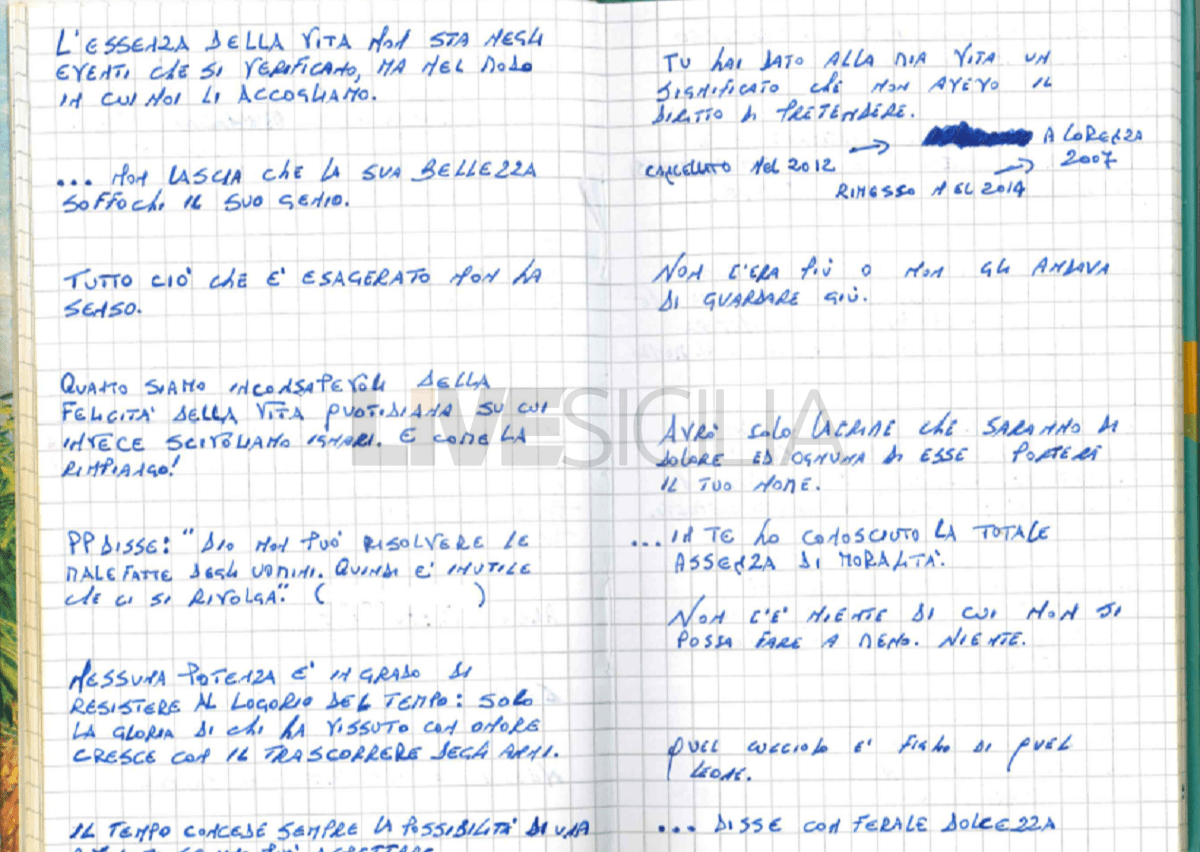 L'ESSENZA DELLA VITA NON STA NEGLI
EVENTI CHE SI VERIFICANO, MA NEL MODO
IN CUI NOI LI ACCOGLIAMO.
... NON LASCIA CHE LA SUA BELLEZZA
SOFFOCHI IL SUO GENIO.
TUTTO CIÒ CHE E' ESAGERATO NON HA
SENSO.
QUANTO SIAMO INCONSAPEVOLI DELLA
FELICITA' DELLA VITA QUOTIDIANA SU CUI
INVECE SCIVOLIAMO IGNARI. E COME LA
RIMPIANGO!
PP DISSE: "DIO NON PUÒ RISOLVERE LE
MALEFATTE DEGLI UOMINI. QUINDI E' INUTILE
CHE CI SI RIVOLGA". ( )
NESSUNA POTENZA E' IN GRADO DI
RESISTERE AL LOGORIO DEL TEMPO: SOLO
LA GLORIA DI CHI HA VISSUTO CON ONORE
CRESCE CON IL TRASCORRERE DEGLI ANNI.
IL TEMPO CONCEDE SEMPRE LA POSSIBILITA' DI UNA
TU HAI DATO ALLA MIA VITA UN
SIGNIFICATO CHE NON AVEVO IL
DIRITTO DI PRETENDERE.
A LORENZA
CANCELLATO NEL 2012 → 2007
RIMESSO NEL 2014 →
NON C'ERA PIÙ O NON GLI ANDAVA
DI GUARDARE GIÙ.
AVRÒ SOLO LACRIME CHE SARANNO DI
DOLORE ED OGNUNA DI ESSE PORTERÀ
IL TUO NOME.
... IN TE HO CONOSCIUTO LA TOTALE
ASSENZA DI MORALITÀ.
NON C'E' NIENTE DI CUI NON SI
POSSA FARE A MENO. NIENTE.
QUEL CUCCIOLO E' FIGLIO DI QUEL
LEONE.
... DISSE CON FERALE DOLCEZZA
LIVESICILIA